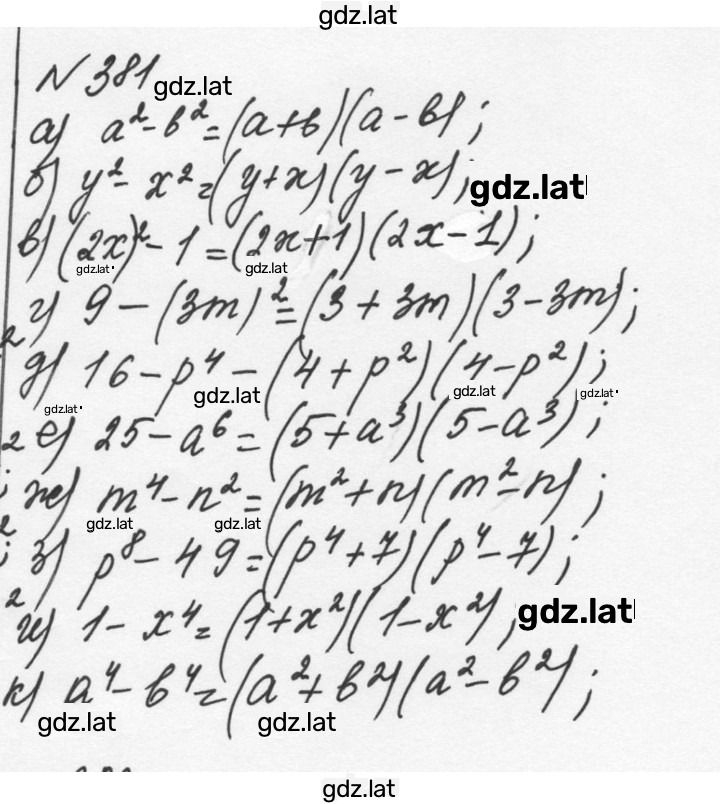 gdz.lat
№381 gdz.lat
а) a²-b²=(a+b)(a-b);
б) y²-x²=(y+x)(y-x), gdz.lat
в) (2x)²-1=(2x+1)(2x-1);
gdz.lat gdz.lat
г) 9-(3m)²=(3+3m)(3-3m);
2
д) 16-p⁴-(4+p²)(4-p²);
gdz.lat gdz.lat gdz.lat gdz.lat
2 е) 25-a⁶=(5+a³)(5-a³);
; ж) m⁴-n²=(m²+n)(m²-n);
2 gdz.lat gdz.lat
; з) p⁸-49=(p⁴+7)(p⁴-7);
2
и) 1-x⁴=(1+x²)(1-x²), gdz.lat
к) a⁴-b⁴=(a²+b²)(a²-b²);
gdz.lat gdz.lat
gdz.lat